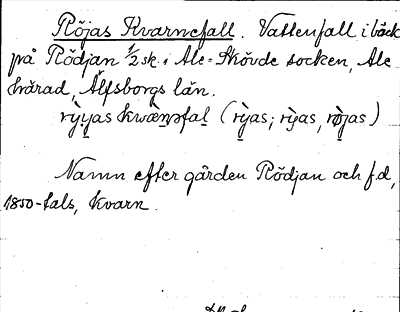 Röjas Kvarnefall. Vattenfall i bäck
på Rödjan 1/2 sk. i Ale-Skövde socken, Ale
härad, Älfsborgs län.
Namn efter gården Rödjan och f.d,
1850-tals, kvarn.